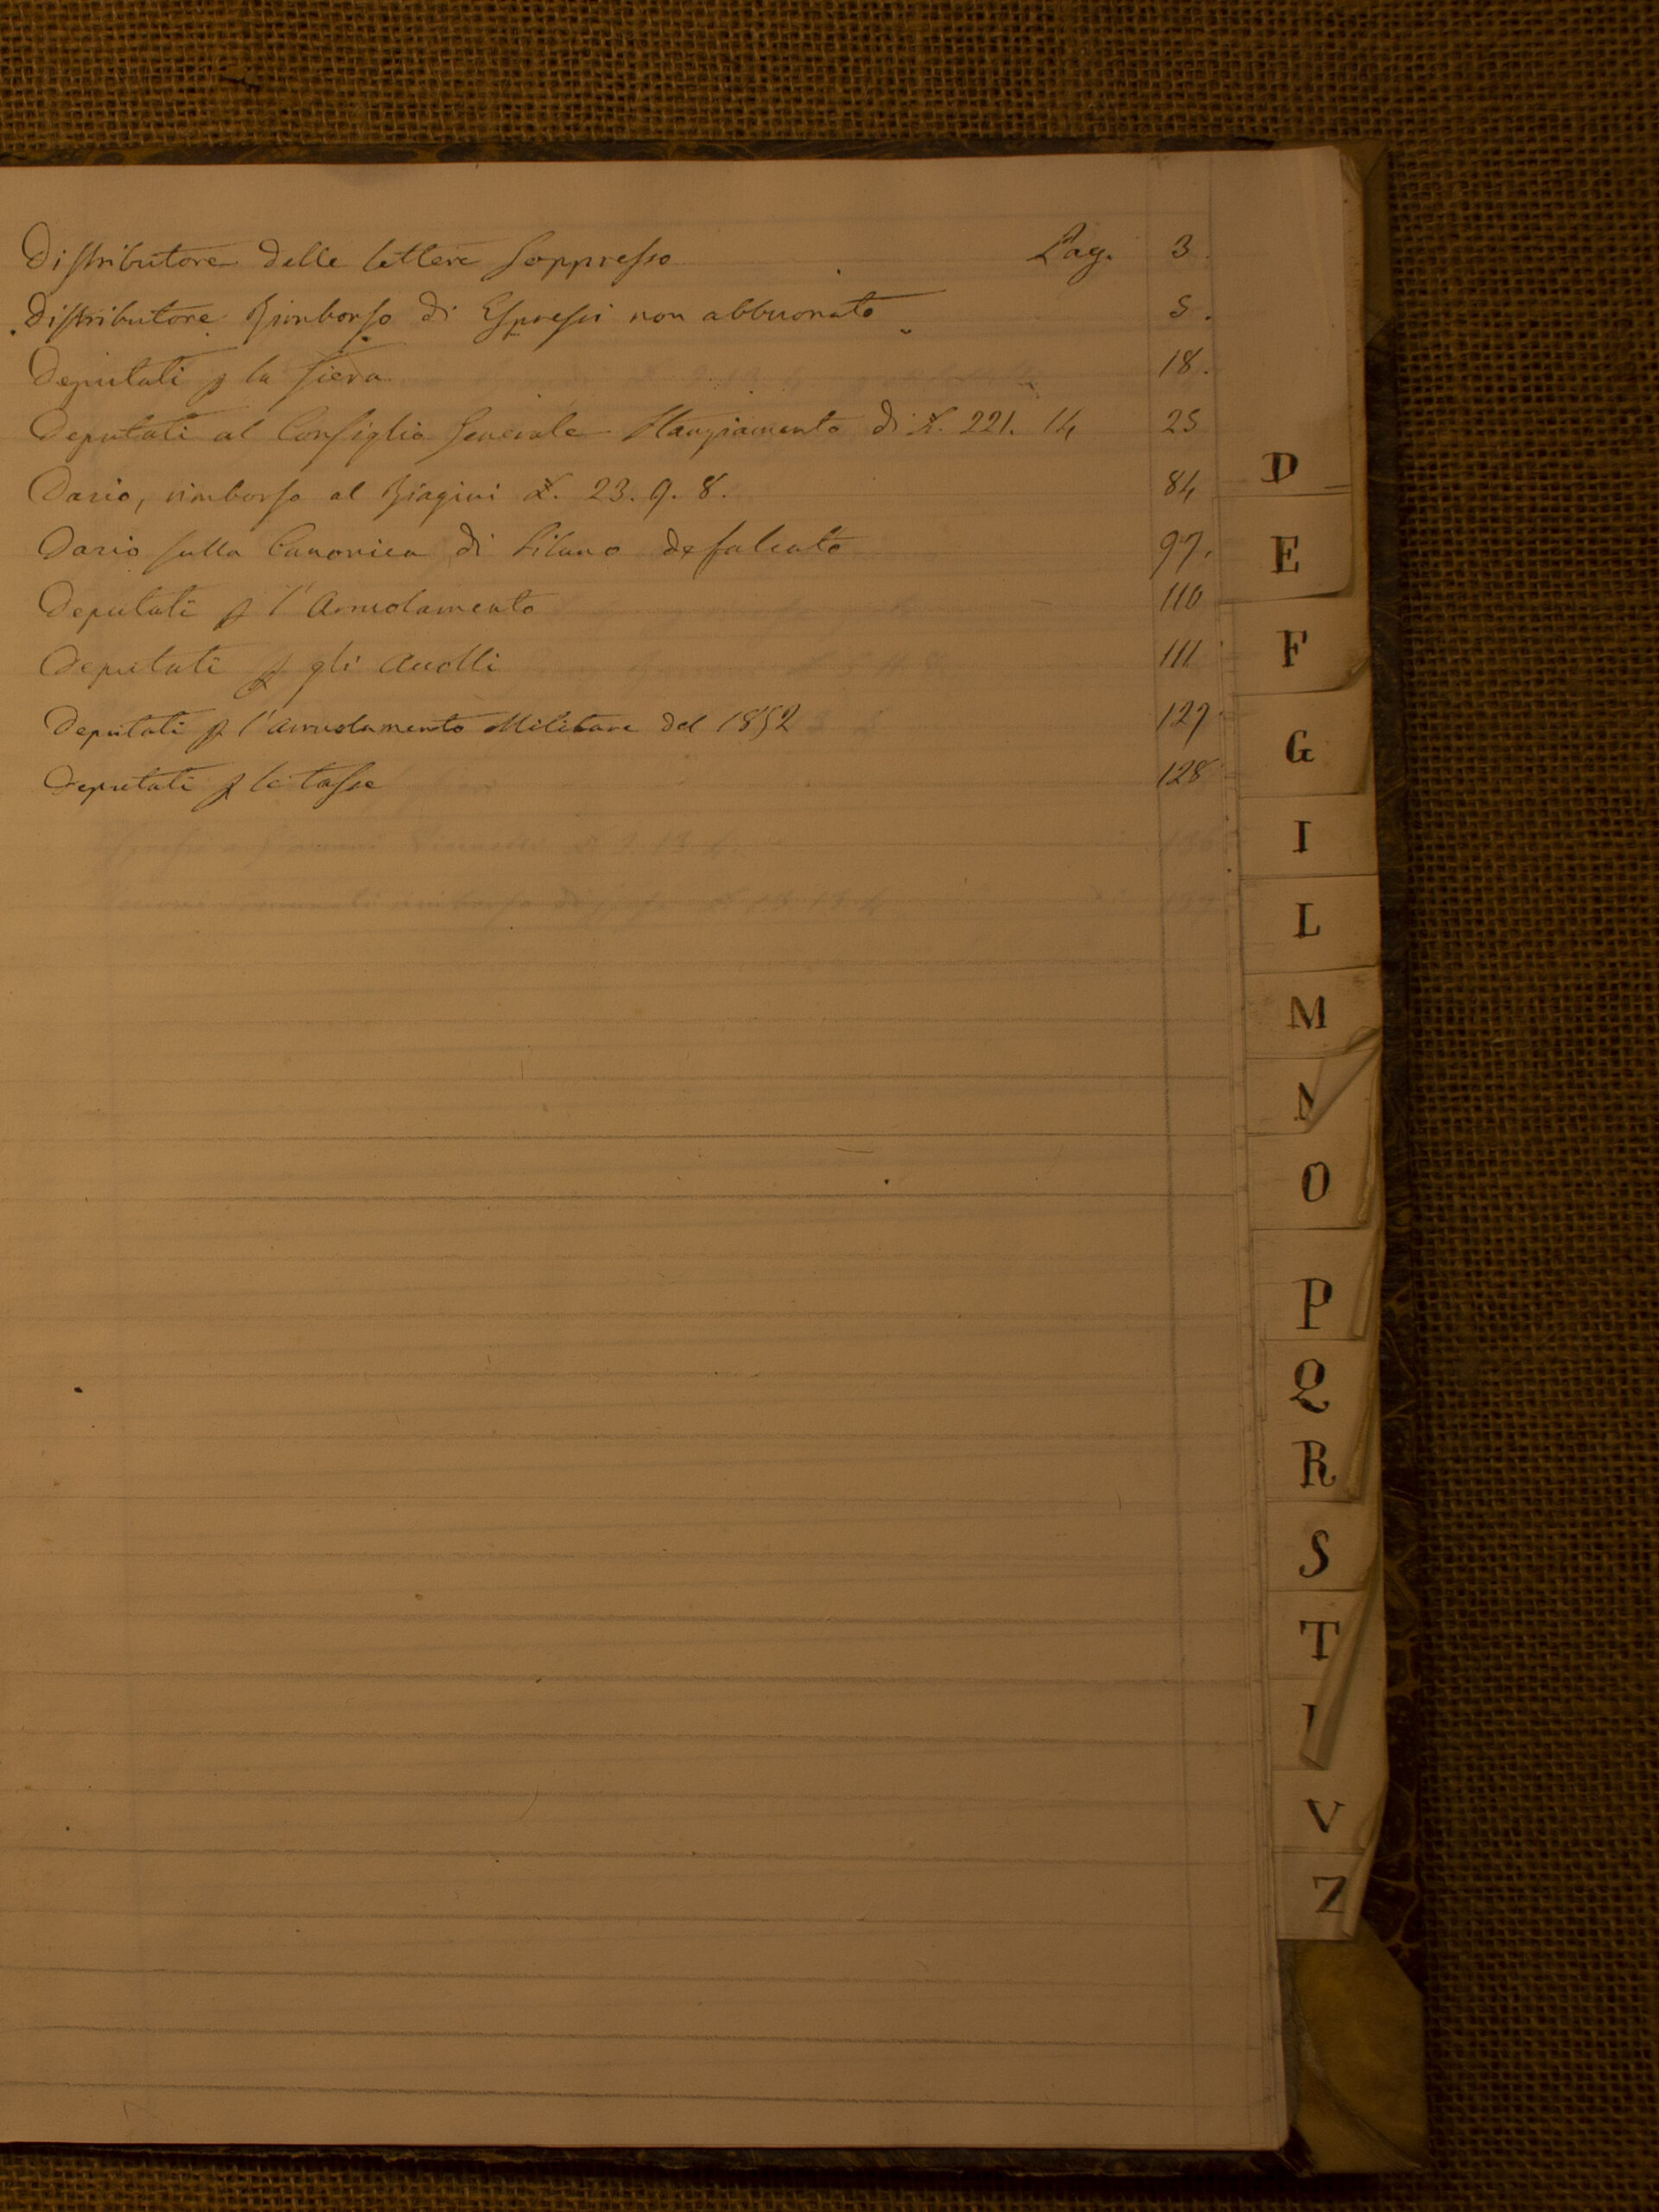 Distributore delle lettere soppresso Pag. 3.
Distributore Rimborso di Espressi non abbuonato „ 5.
Deputati p la fiera 18.
Deputati al Consiglio Generale Stanziamento di £. 221. 14 25
Dazio, rimborso al Biagini £. 23. 9. 8. 84
Dazio sulla Canonica di defalcato 97.
Deputati p l'Arruolamento 110
Deputati p gli Accolli 111
Deputati p l'arruolamento Militare del 1852 127
Deputati p le tasse 128
D
E
F
G
I
L
M
N
O
P
Q
R
S
T
V
Z